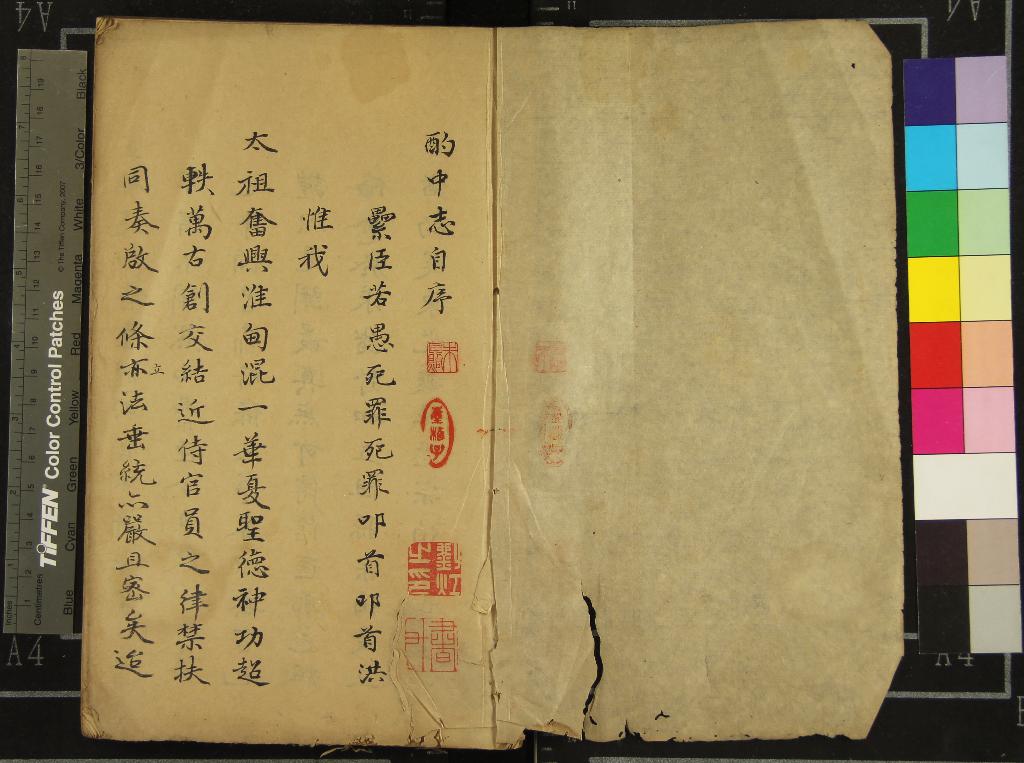 酌中志自序
纍臣若愚死罪死罪叩首叩首洪
惟我
太祖奮興淮甸混一華夏聖德神功超
軼萬古創交結近侍官員之律禁扶
同奏啟之條亦立法垂統亦嚴且密矣迨
劉灯
之印
TIFFEN Color Control Patches
© The Tiffen Company, 2007
Inches
Centimetres
Blue Cyan Green Yellow Red Magenta White 3/Color Black
A4
A4
A4
A4